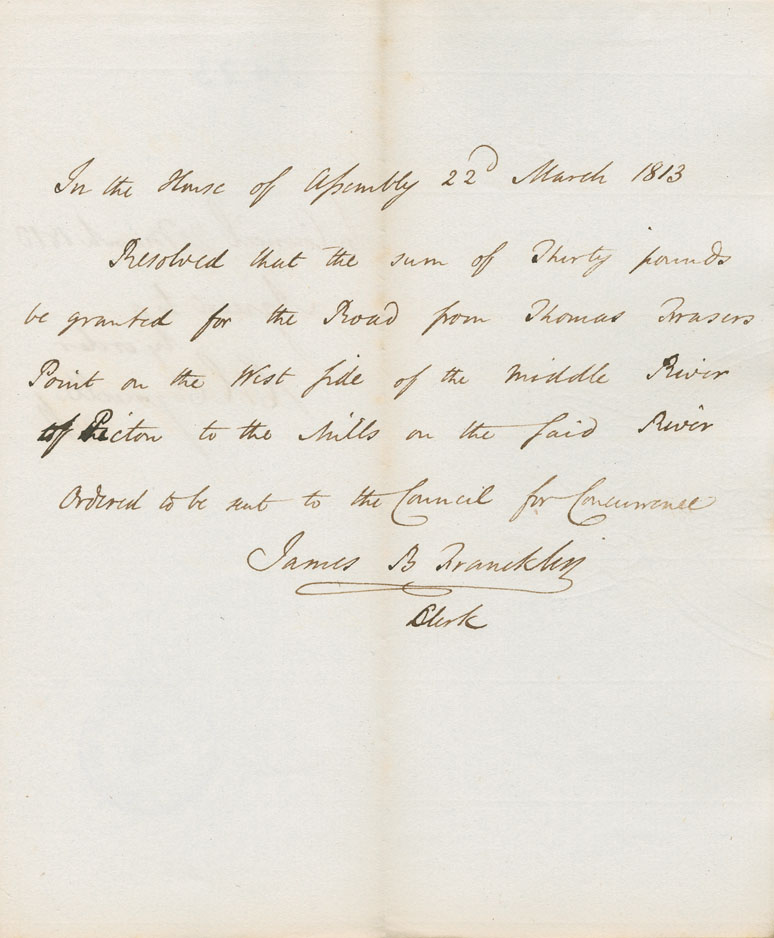 In the House of Assembly 22d March 1813
Resolved that the sum of Thirty pounds
be granted for the Road from Thomas Frasers
Point on the West side of the Middle River
of Picton to the Mills on the said River
Ordered to be sent to the Council for Concurrence
James B Francklin
Clerk